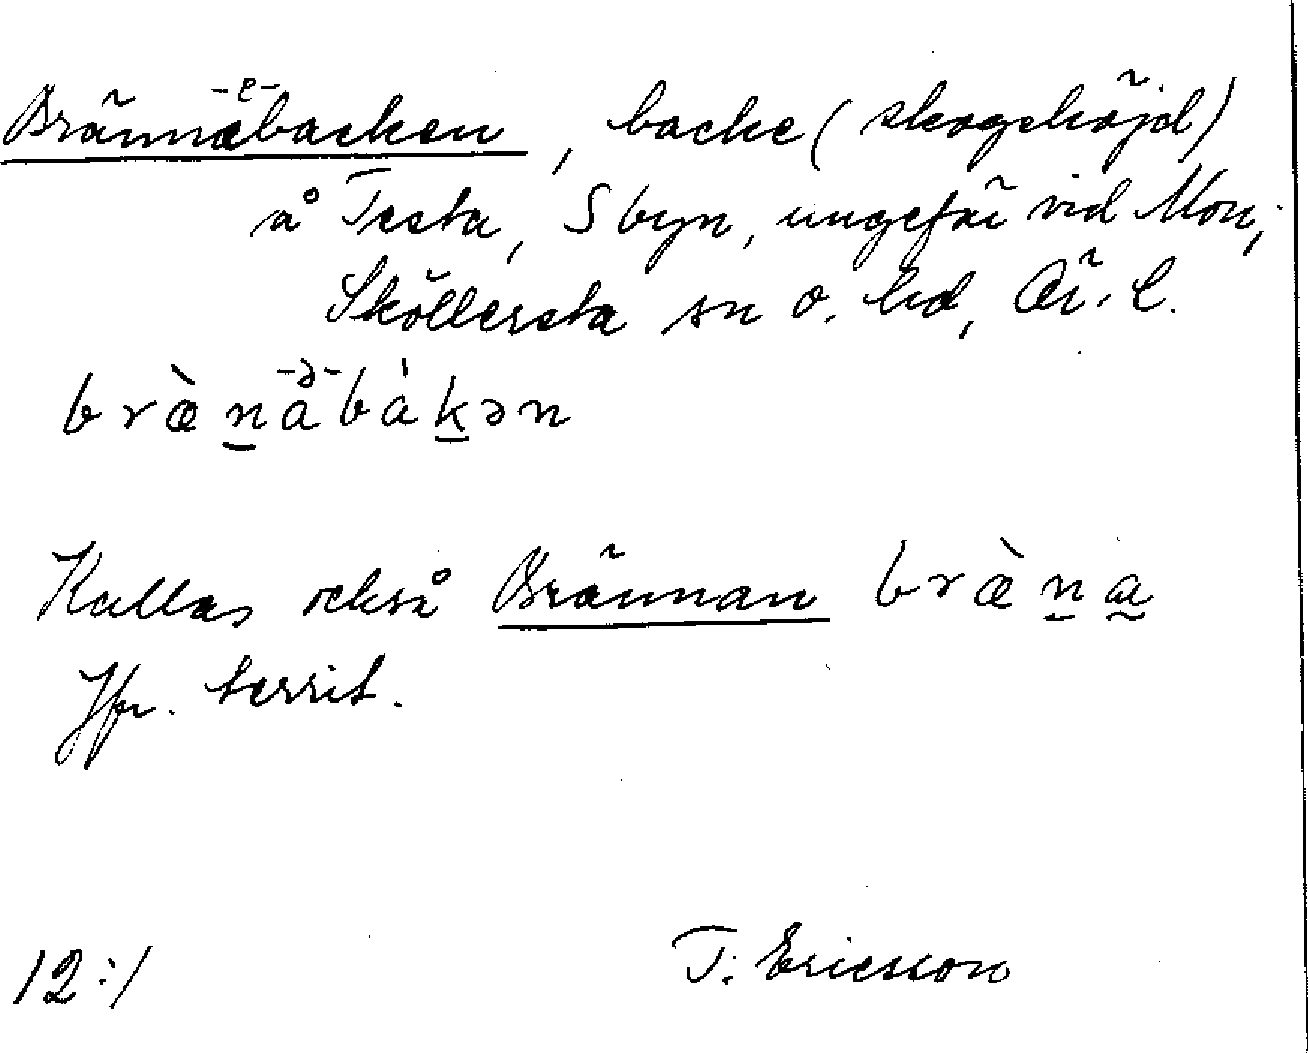 Brännäbacken, backe (skogshöjd)
-e-
å Testa, S byn, ungefär vid Mon,
Sköllersta sn o. hd, Ör. l.
-ə-
bræ̀n̲abàk̲ən
Kallas också Brännan bræ̀n̲a̰
Jfr. territ.
12:/ T. Ericsson